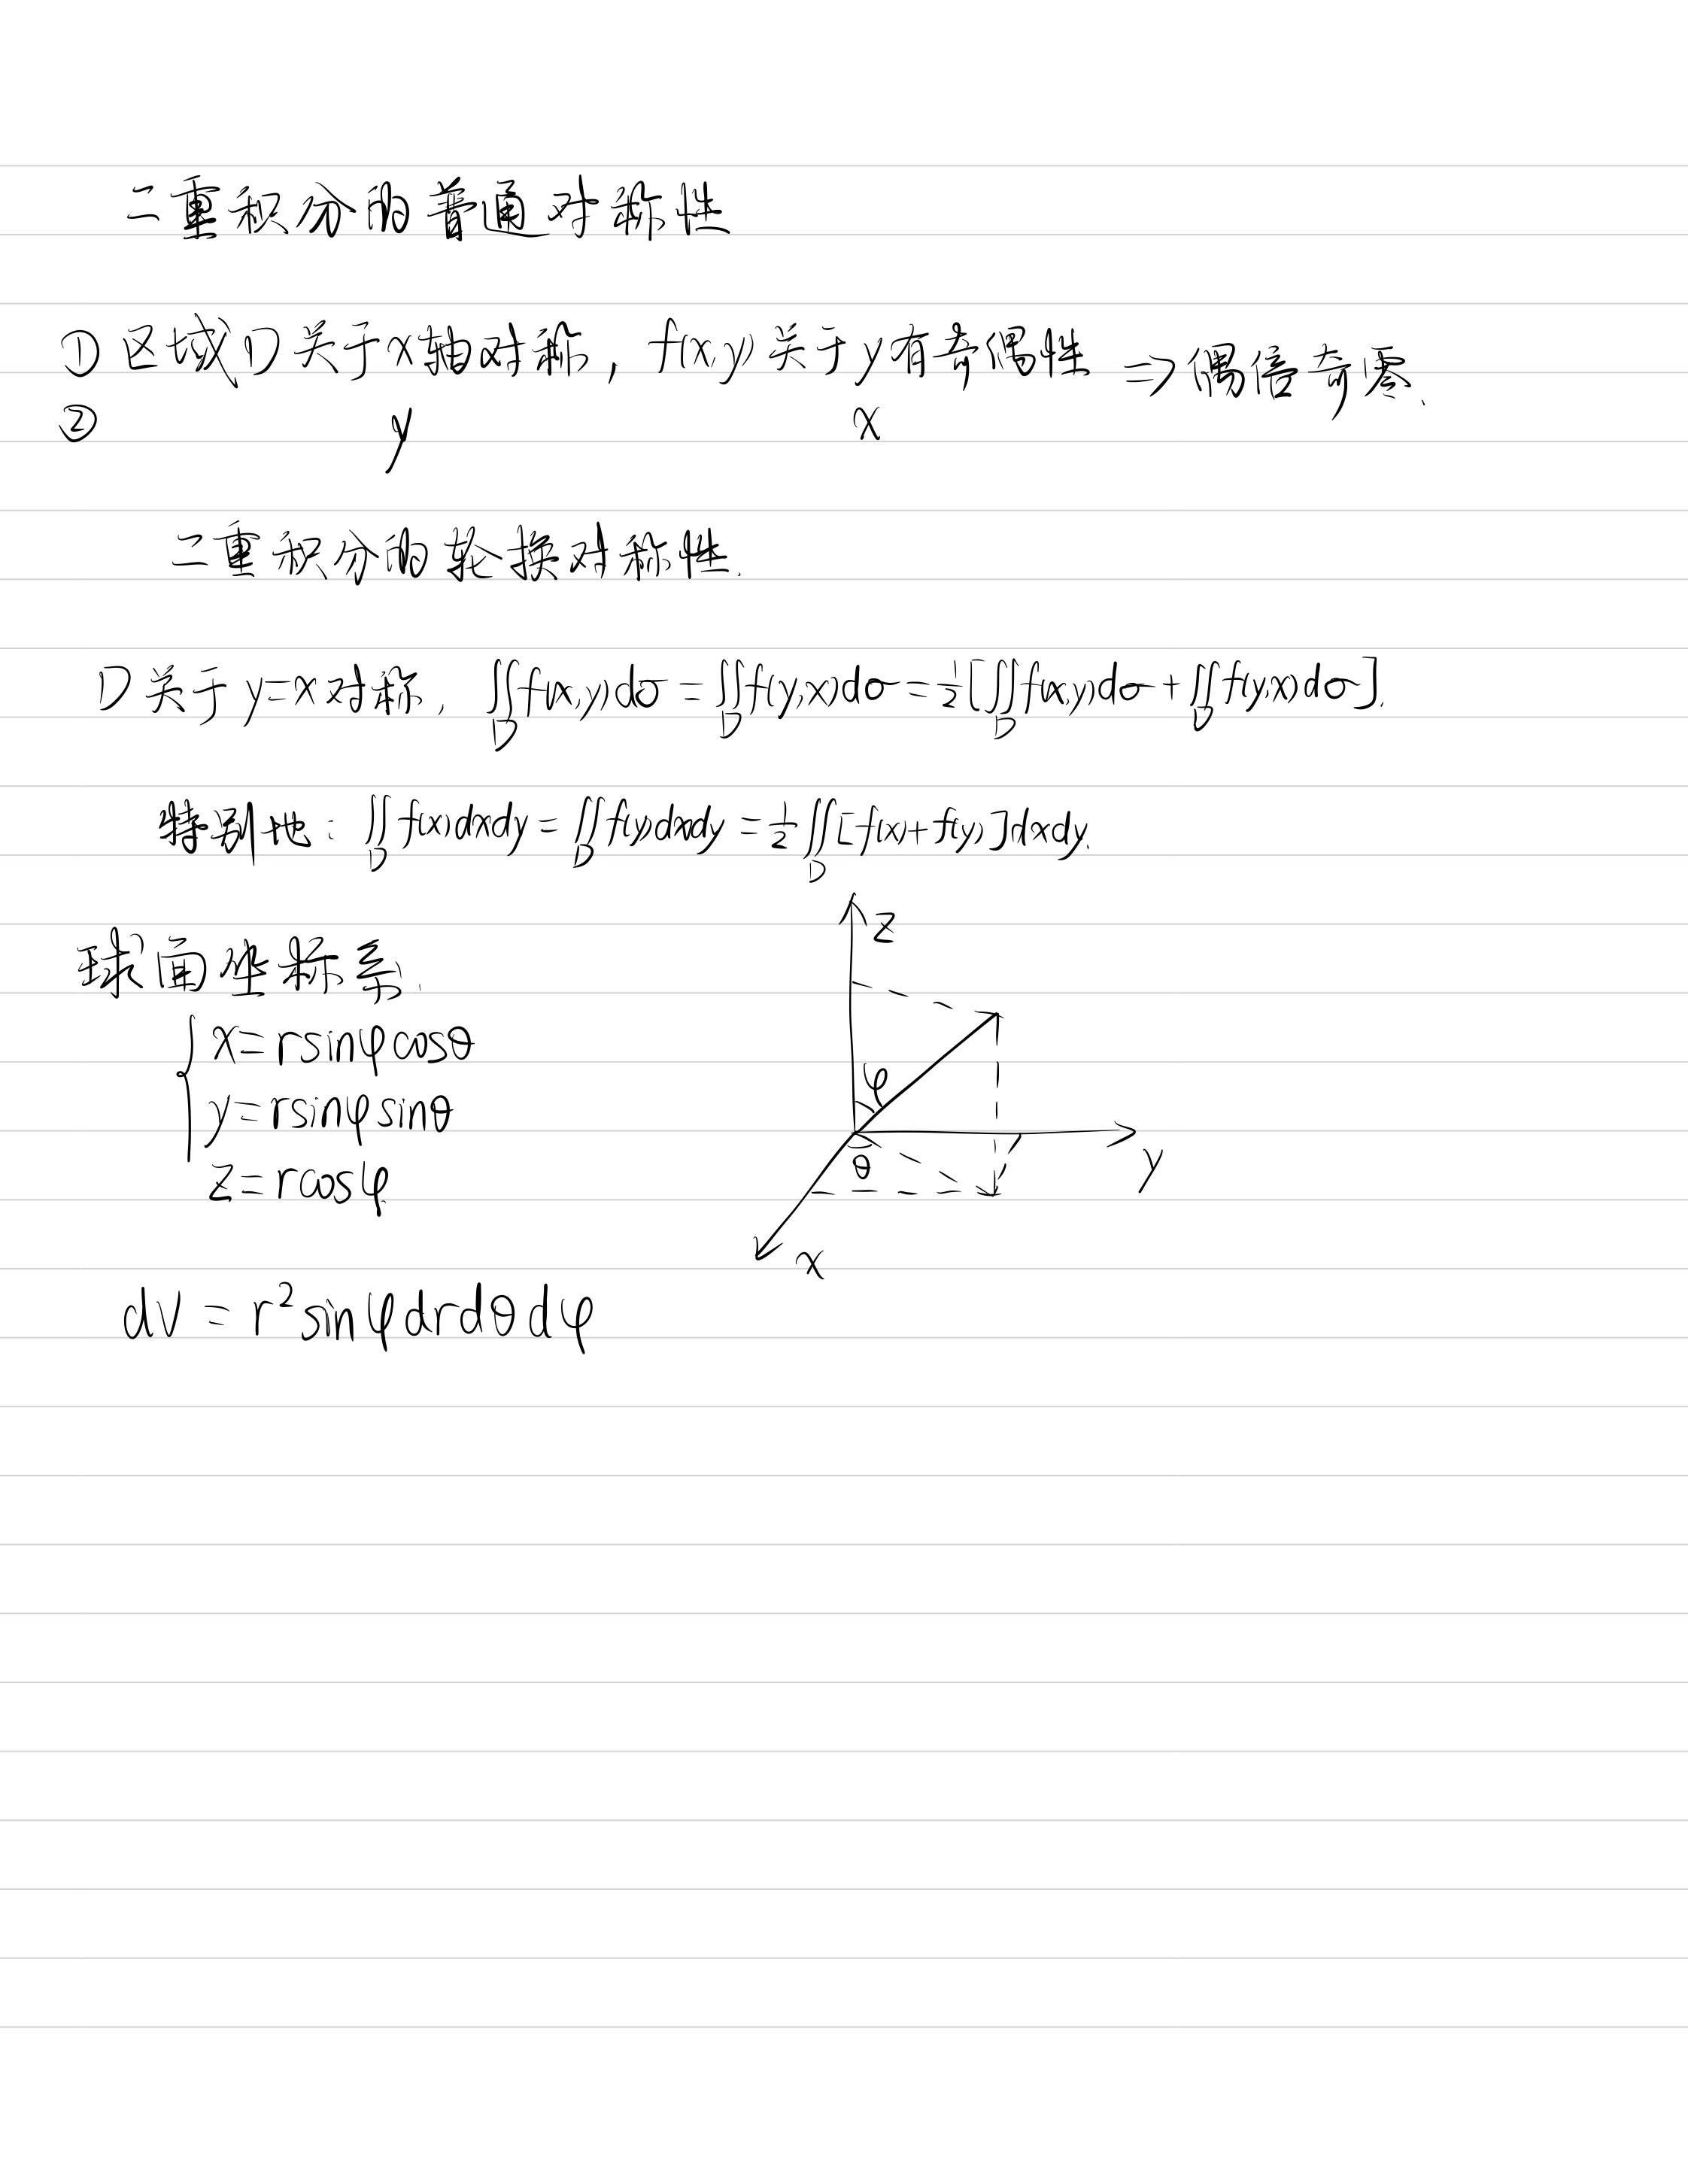 二重积分的普通对称性
① 区域D关于x轴对称，f(x,y)关于y有奇偶性 ⇒ 偶倍奇零.
② y x
二重积分的轮换对称性.
D关于y=x对称，∬_D f(x,y)dσ = ∬_D f(y,x)dσ = 1/2[∬_D f(x,y)dσ + ∬_D f(y,x)dσ].
特别地：∬_D f(x)dxdy = ∬_D f(y)dxdy = 1/2 ∬_D [f(x)+f(y)]dxdy.
球面坐标系.
{ x=rsinφcosθ
y=rsinφsinθ
z=rcosφ
z
φ
θ
y
x
dv = r²sinφdrdθdφ